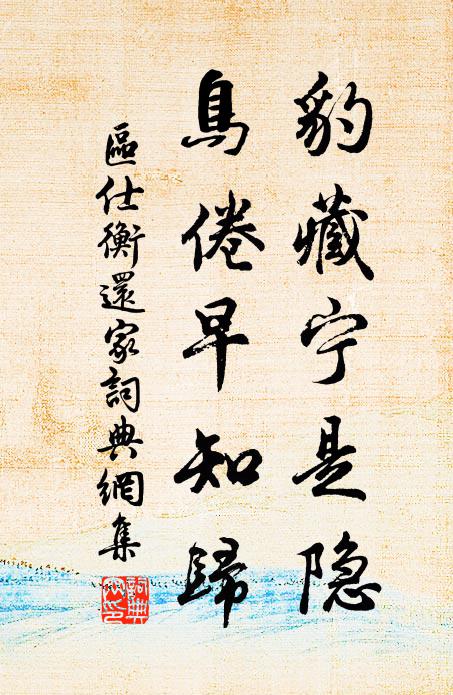 豹藏宁是隐
鳥倦早知歸
區仕衡還家詞典網集